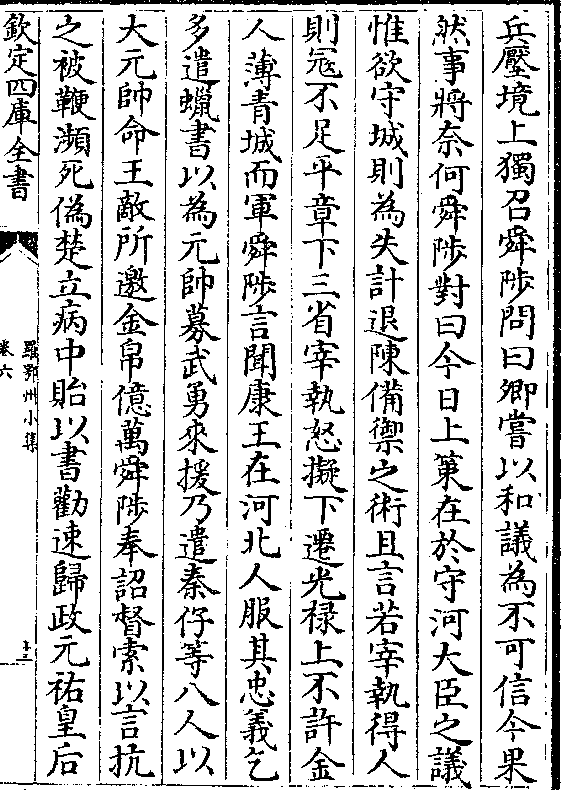 兵壓境上獨召舜陟問曰卿嘗以和議為不可信今果
然事將奈何舜陟對曰今日上策在於守河大臣之議
惟欲守城則為失計退陳備禦之術且言若宰執得人
則冦不足平章下三省宰執怒擬下遷光禄上不許金
人薄青城而軍舜陟言聞康王在河北人服其忠義乞
多遣蠟書以為元帥募武勇來援乃遣秦仔等八人以
大元帥命王敵所邀金帛億萬舜陟奉詔督索以言抗
之被鞭瀕死偽楚立病中貽以書勸速歸政元祐皇后
欽定四庫全書
羅鄂州小集
卷六
十二